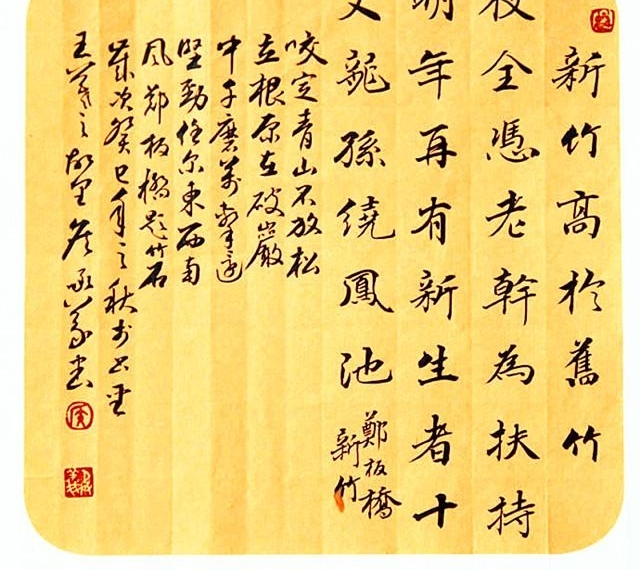 新竹高於舊竹
枝全憑老幹為扶持
明年再有新生者十
丈龍孫繞鳳池
鄭板橋
新竹
咬定青山不放松
立根原在破巖
中千磨萬擊還
堅勁任尔東西南
風鄭板橋題竹石
歲次癸巳年之秋於
王羲之故里
書